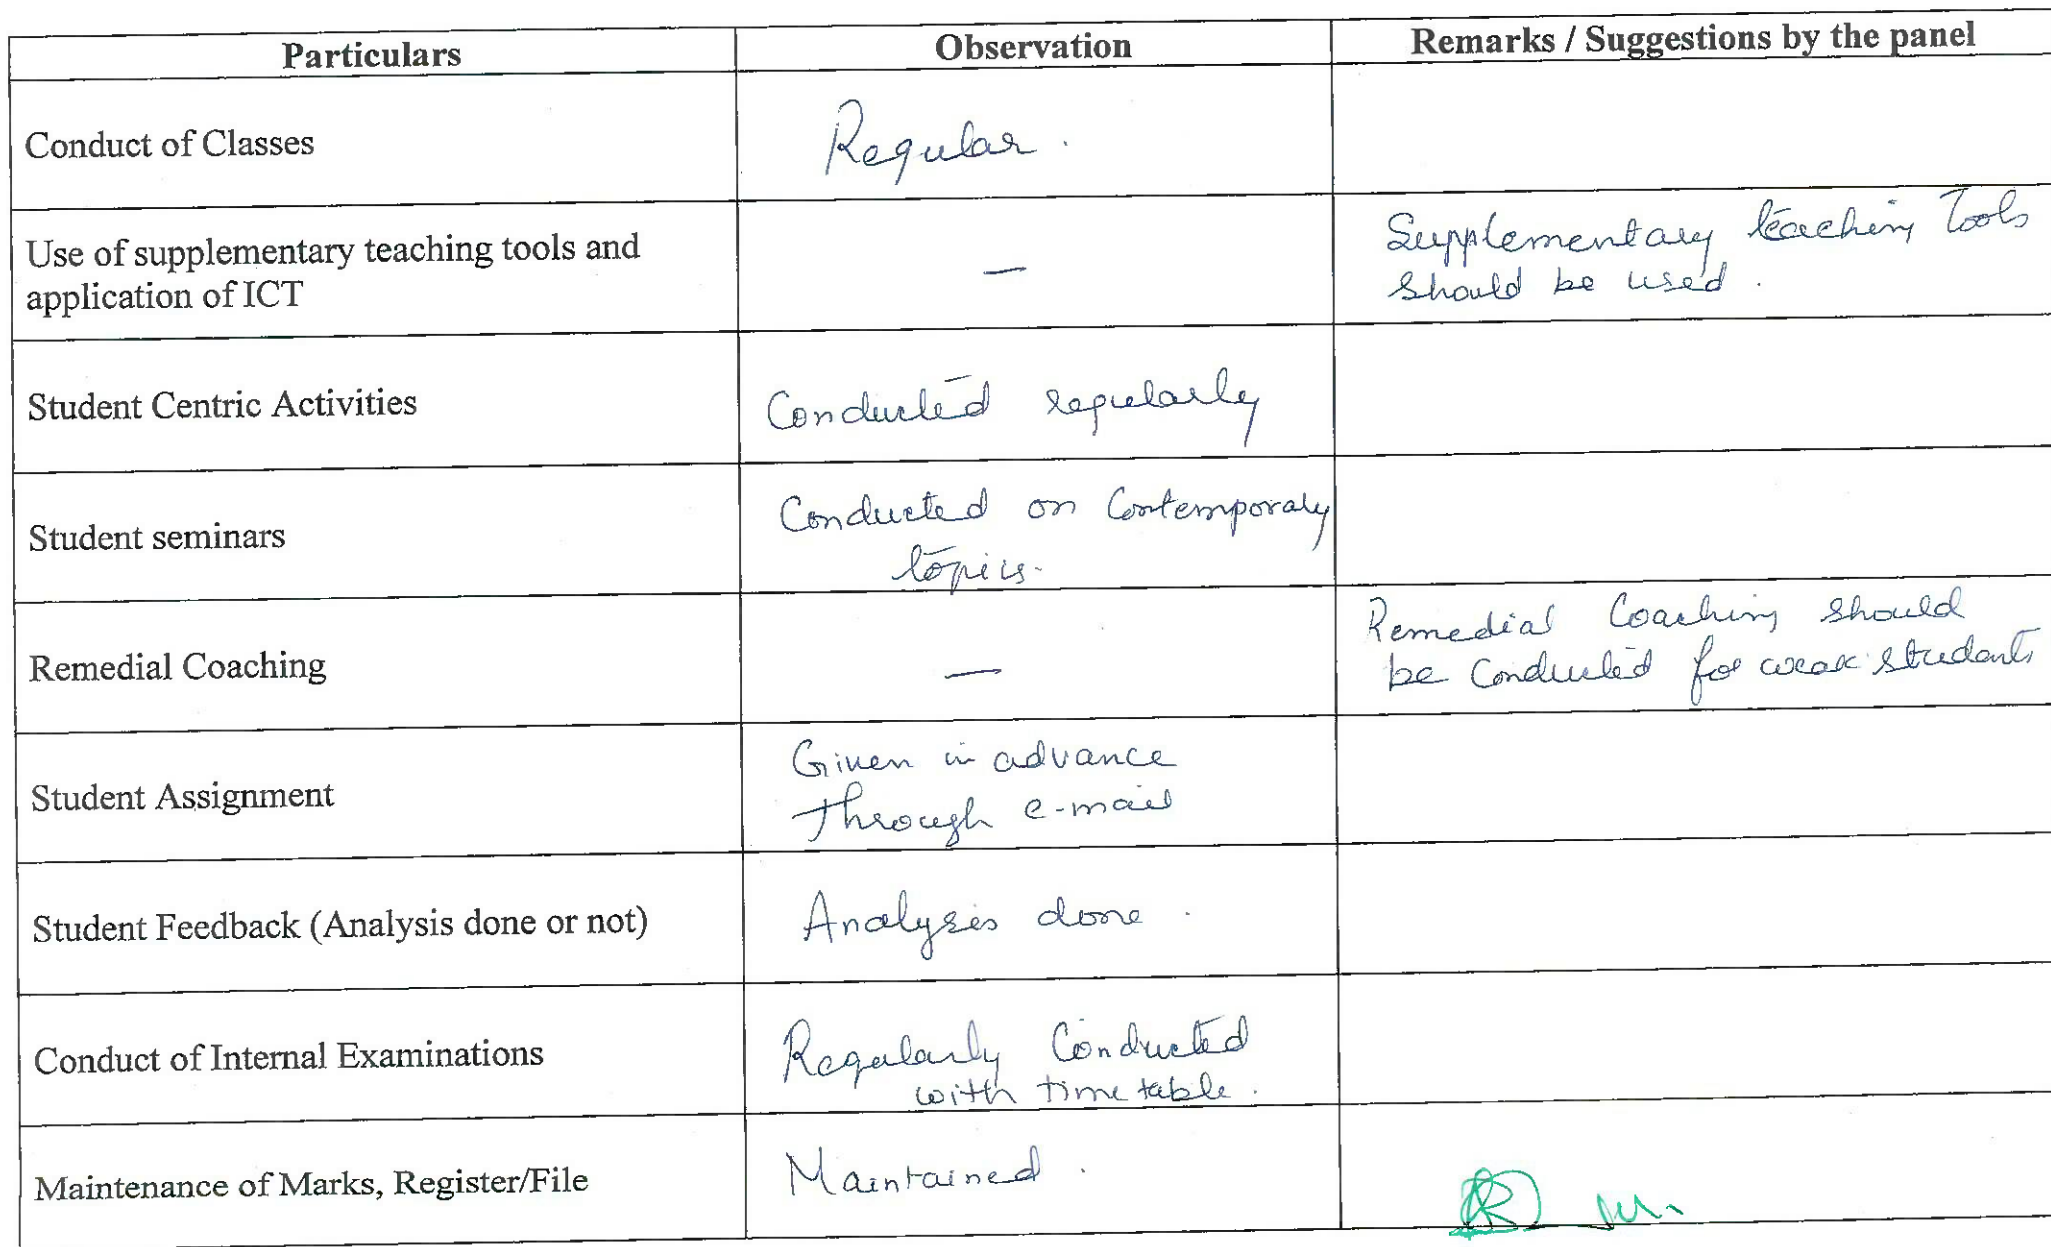 Particulars Observation Remarks / Suggestions by the panel
Conduct of Classes Regular.
Use of supplementary teaching tools and
application of ICT
—
Supplementary teaching Tools
should be used.
Student Centric Activities Conducted regularly
Student seminars
Conducted on Contemporary
topics.
Remedial Coaching
—
Remedial Coaching should
be Conducted for weak students
Student Assignment
Given in advance
through e-mail
Student Feedback (Analysis done or not) Analysis done.
Conduct of Internal Examinations
Regularly Conducted
with time table.
Maintenance of Marks, Register/File Maintained.